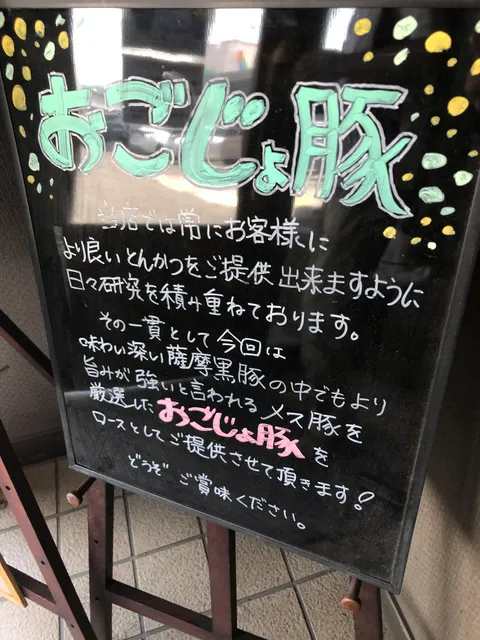 おごじょ豚
当店では常にお客様に
より良いとんかつをご提供出来ますように
日々研究を積み重ねております。
その一貫として今回は
味わい深い薩摩黒豚の中でもより
旨みが強いと言われるメス豚を
厳選したおごじょ豚を
ロースとしてご提供させて頂きます!
どうぞご賞味ください。